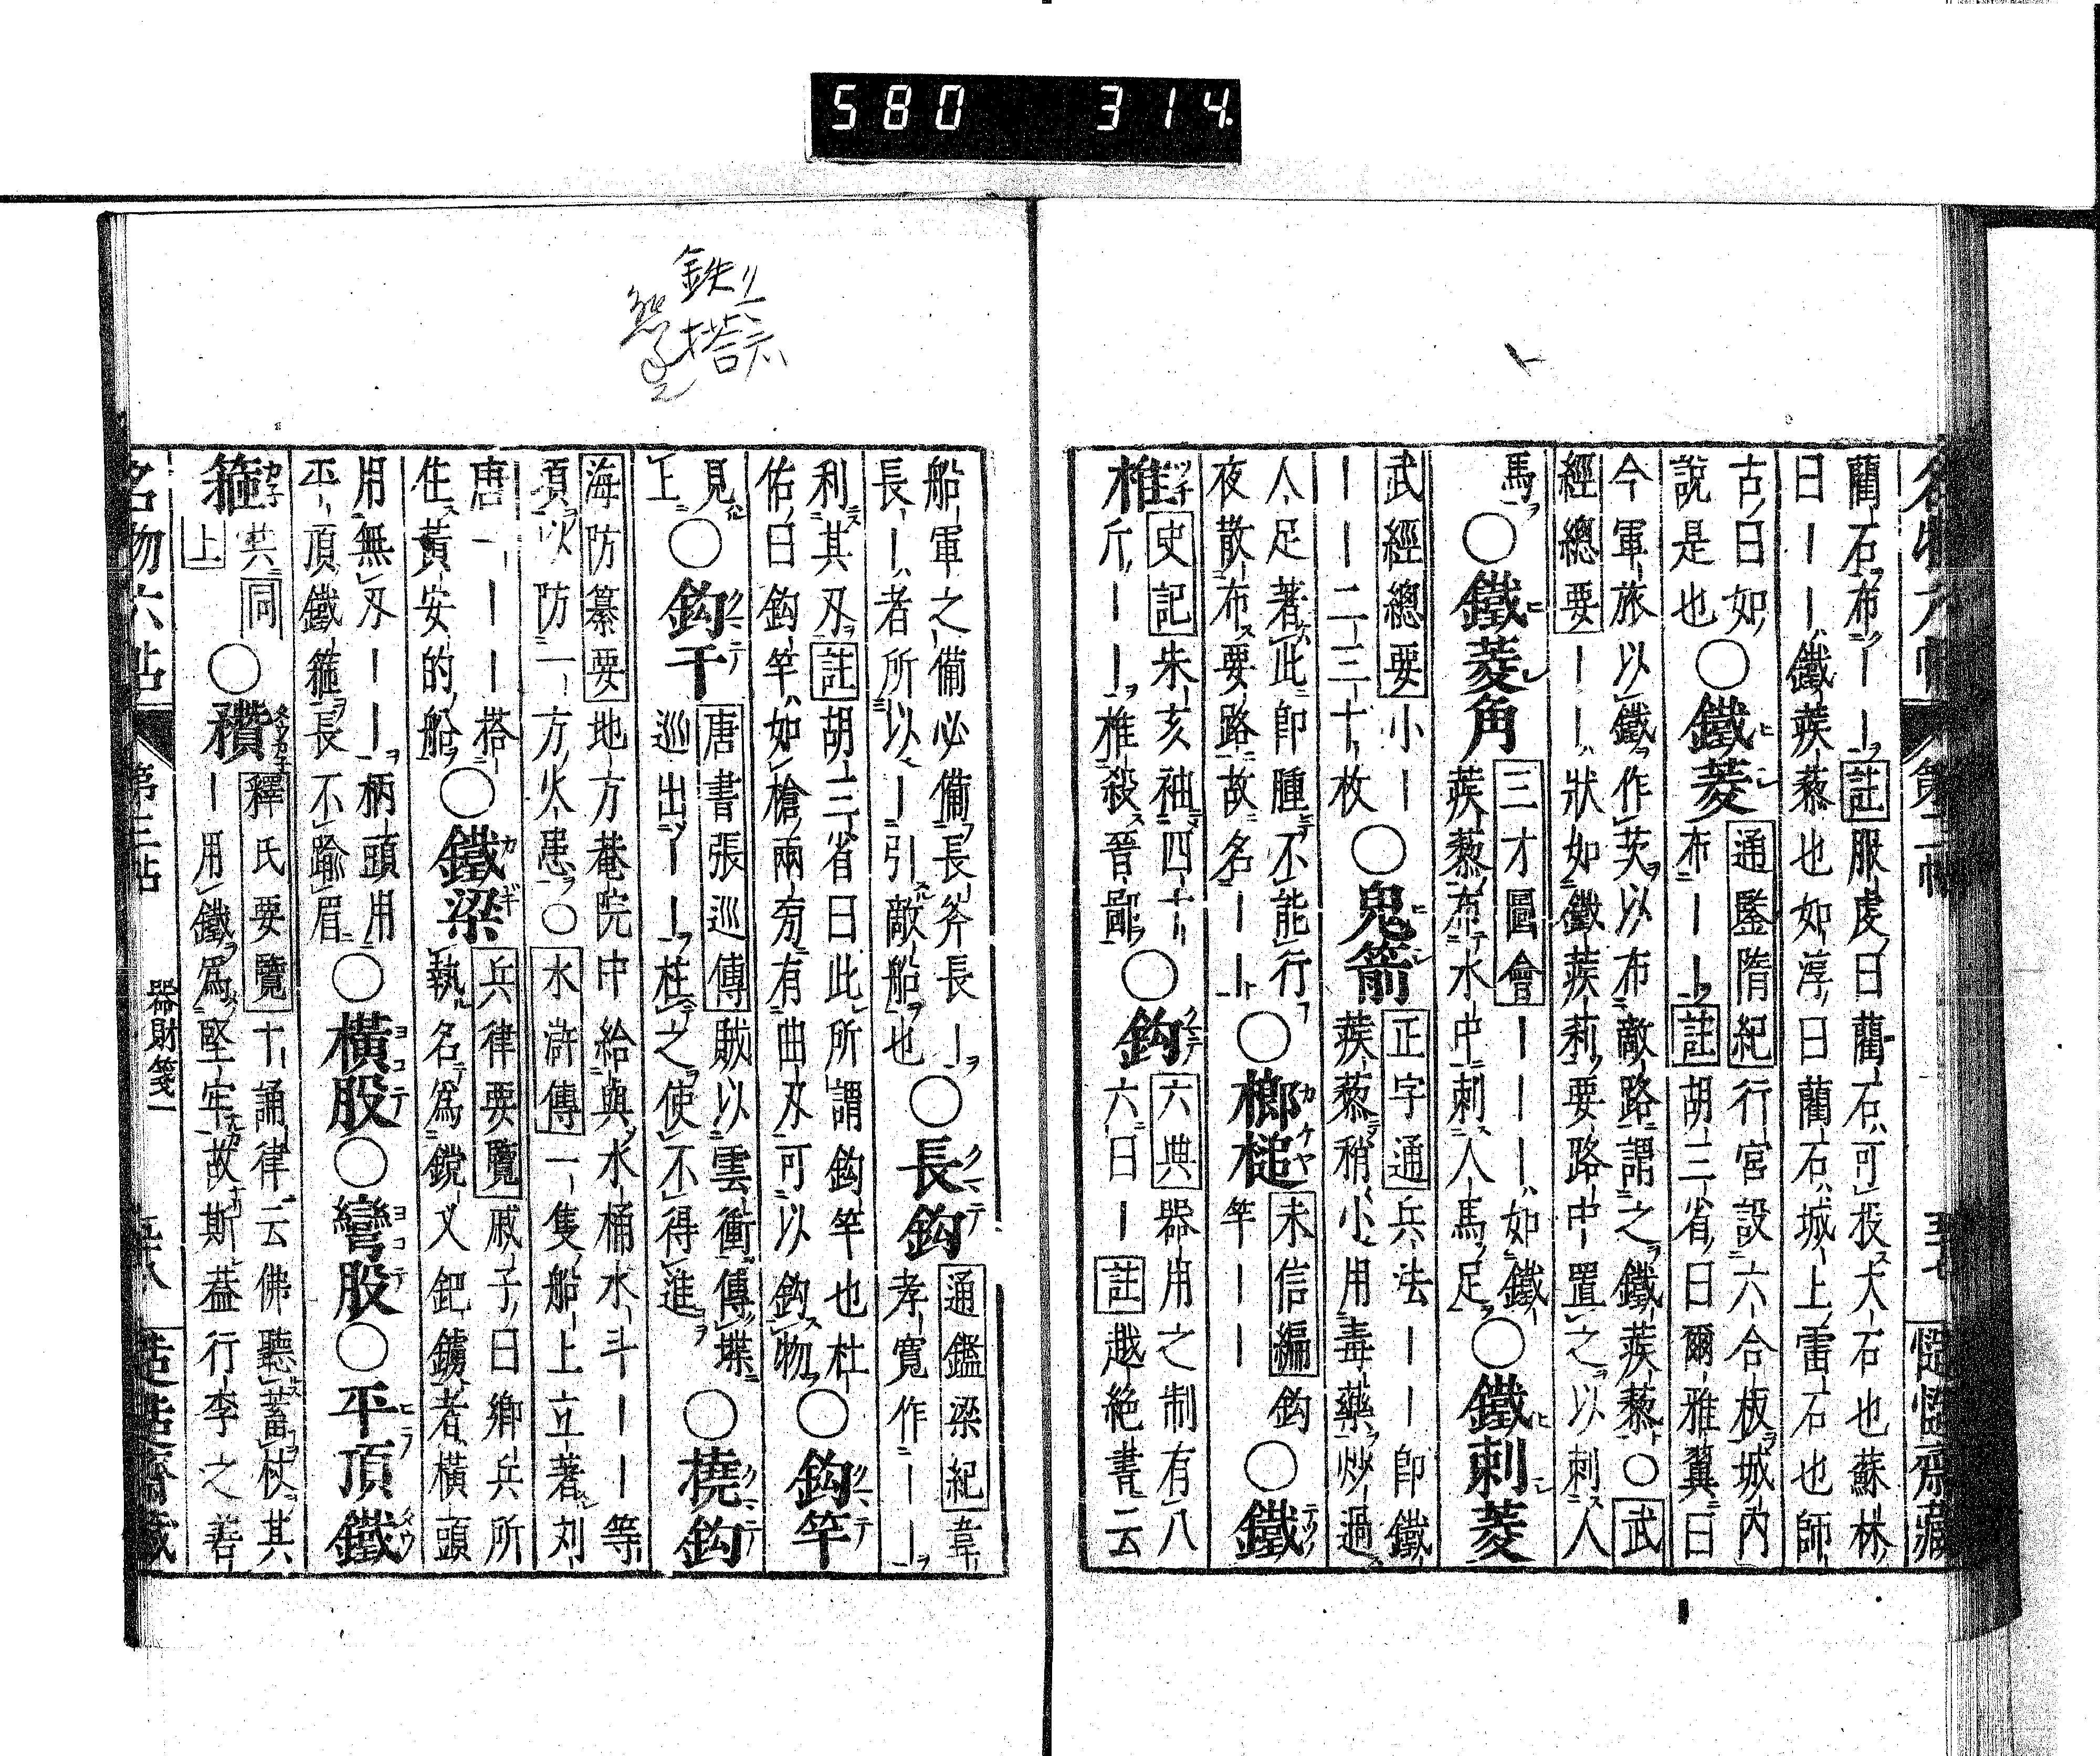 580 314.
名物六帖 第三帖
慥慥齋藏
藺石布ーー註服虔曰藺石可投大石也蘇林
曰ーー鐵蒺藜也如淳曰藺石城上雷石也師
古曰如
說是也〇鐵菱通鑒隋紀行宮設六合板城內
布ーー註胡三省曰爾雅翼曰
今軍旅以鐵作茨以布敵路謂之鐵蒺藜〇武
經總要ーー狀如鐵蒺莉要路中置之以刺人
馬〇鐵菱角三才圖會ーーー如鐵
蒺藜布水中刺人馬足〇鐵刺菱
武經總要小ー
ーーー二三十枚〇鬼箭正字通兵法ーー卽鐵
蒺藜稍小用毒藥炒過
人足著此卽腫不能行
夜散布要路故名ーー〇榔槌未信編鈎
竿ーー〇鐵
椎史記朱亥袖四十
斤ーーー椎殺晉鄙〇鈎六典器用之制有八
六曰ー註越絶書云
鉄
搭
船軍之備必備長斧長ー
長ー者所以ー引敵船也〇長鈎通鑑梁紀韋
孝寬作ーー
利其刃註胡三省曰此所謂鈎竿也杜
佑曰鈎竿如槍兩旁有曲刃可以鈎物〇鈎竿
見
上〇鈎干唐書張巡傳賊以雲衝傳堞
巡出ーー柱之使不得進〇撓鈎
海防纂要地方菴院中給與水桶水斗ーー等
須以防一方火患〇水滸傳一隻船上立著刘
唐一ーー搭
住黃安的船〇鐵梁兵律要覽戚子曰鄉兵所
執名爲钂又鈀鐪者橫頭
用無刃ーー柄頭用
平頂鐵箍長不踰眉〇橫股〇彎股〇平頂鐵
箍共同
上〇䂎釋氏要覽十誦律云佛聽蓄杖其
ー用鐵爲堅牢故斯蓋行李之善
名物六帖 第三帖 器財箋一
慥慥齋藏